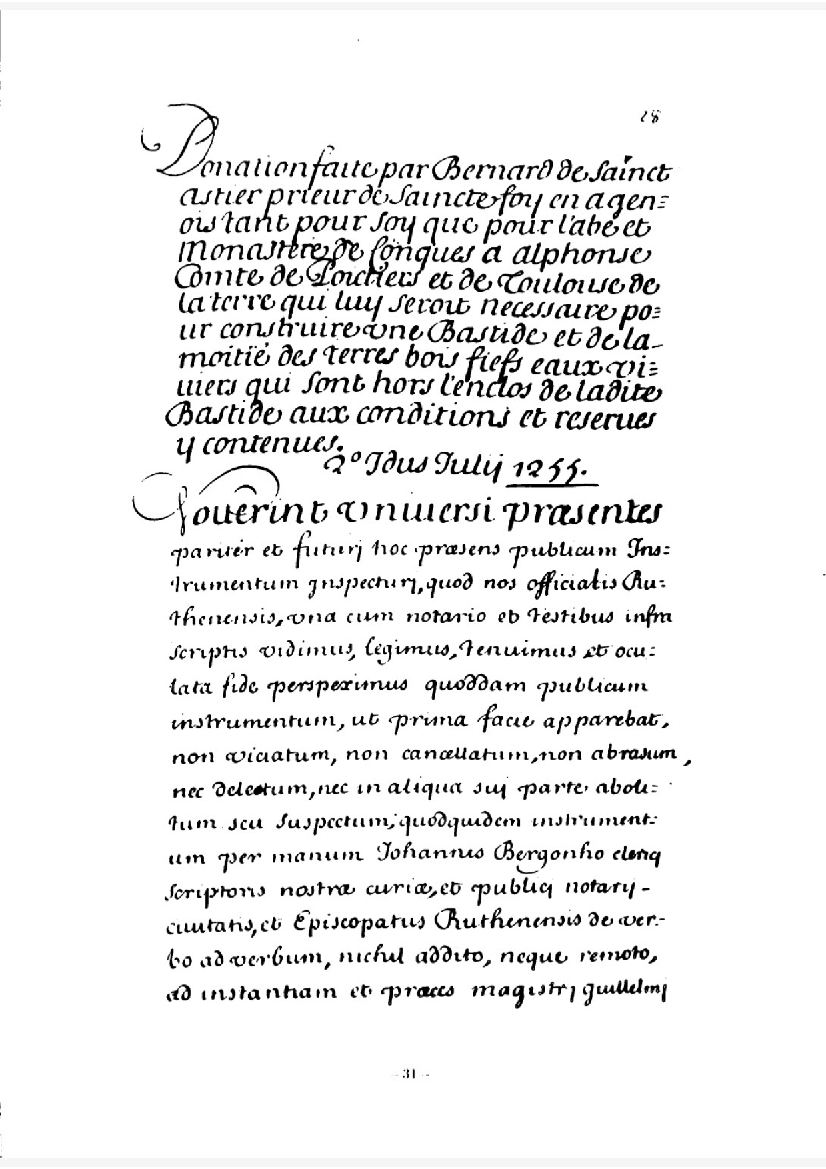 28
Donation faite par Bernard de Sainct
astier prieur de Saincte foy en agen=
ois tant pour soy que pour l'abé et
Monastere de Conques a alphonse
Comte de Poictiers et de Toulouse de
la terre qui luy seroit necessaire po=
ur construire vne Bastide et de la
moitié des terres bois fiefs eaux vi=
uiers qui sont hors l'enclos de ladite
Bastide aux conditions et reserues
y contenues.
2º Idus Iulij 1255.
Nouerint vniuersi præsentes
pariter et futurj hoc præsens publicum Ins=
trumentum jnspecturj, quod nos officialis Ru=
thenensis, vna cum notario et testibus infra
scriptis vidimus, legimus, tenuimus et ocu=
lata fide perspeximus quoddam publicum
instrumentum, ut prima facie apparebat,
non viciatum, non cancellatum, non abrasum,
nec deletum, nec in aliqua suj parte aboli=
tum seu suspectum, quodquidem instrument=
um per manum Johannis Bergonho clericj
scriptoris nostræ curiæ, et publicj notarij
ciuitatis, et Episcopatus Ruthenensis de ver-
bo ad verbum, nichil addito, neque remoto,
ad instantiam et præces magistrj guillelmj
- 31 -